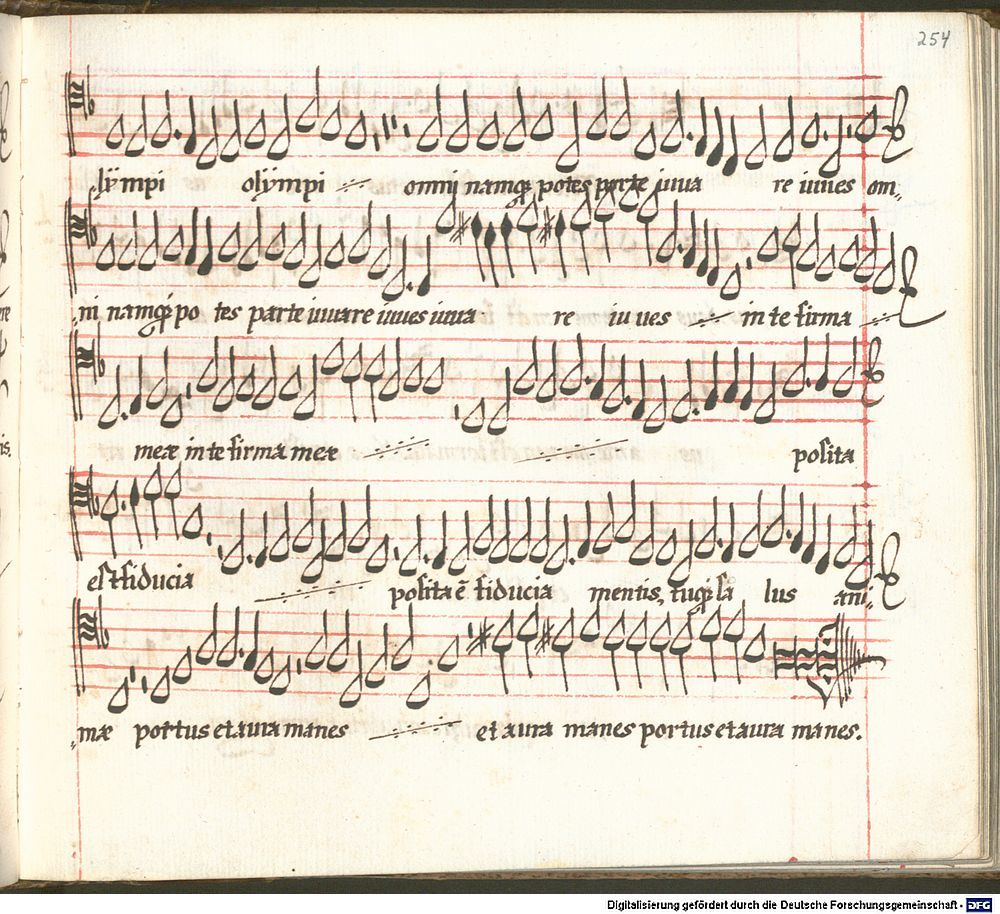 254
lÿmpi olÿmpi omni namq; potes parte iuua re iuues om,,
ni namq; po tes parte iuuare iuues iuua re iu ues in te firma
meæ in te firma meæ posita
est fiducia posita ē fiducia mentis, tuq; sa lus ani,,
mæ portus et aura manes et aura manes portus et aura manes.
ere
is.
Digitalisierung gefördert durch die Deutsche Forschungsgemeinschaft - DFG